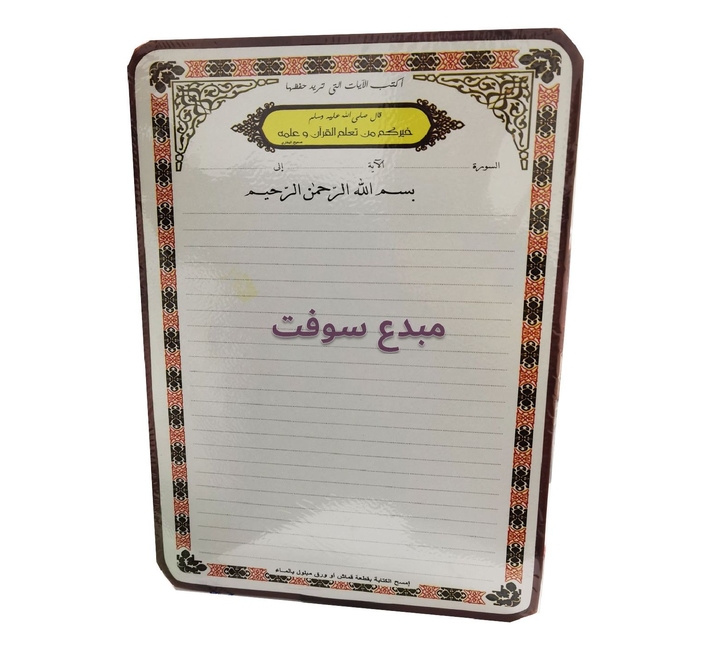 أكتب الآيات التي تريد حفظها
قال صلى الله عليه وسلم
خيركم من تعلم القرآن و علمه
صحيح البخاري
السورة الآية إلى
بسم الله الرحمن الرحيم
مبدع سوفت
إمسح الكتابة بقطعة قماش أو ورق مبلول بالماء